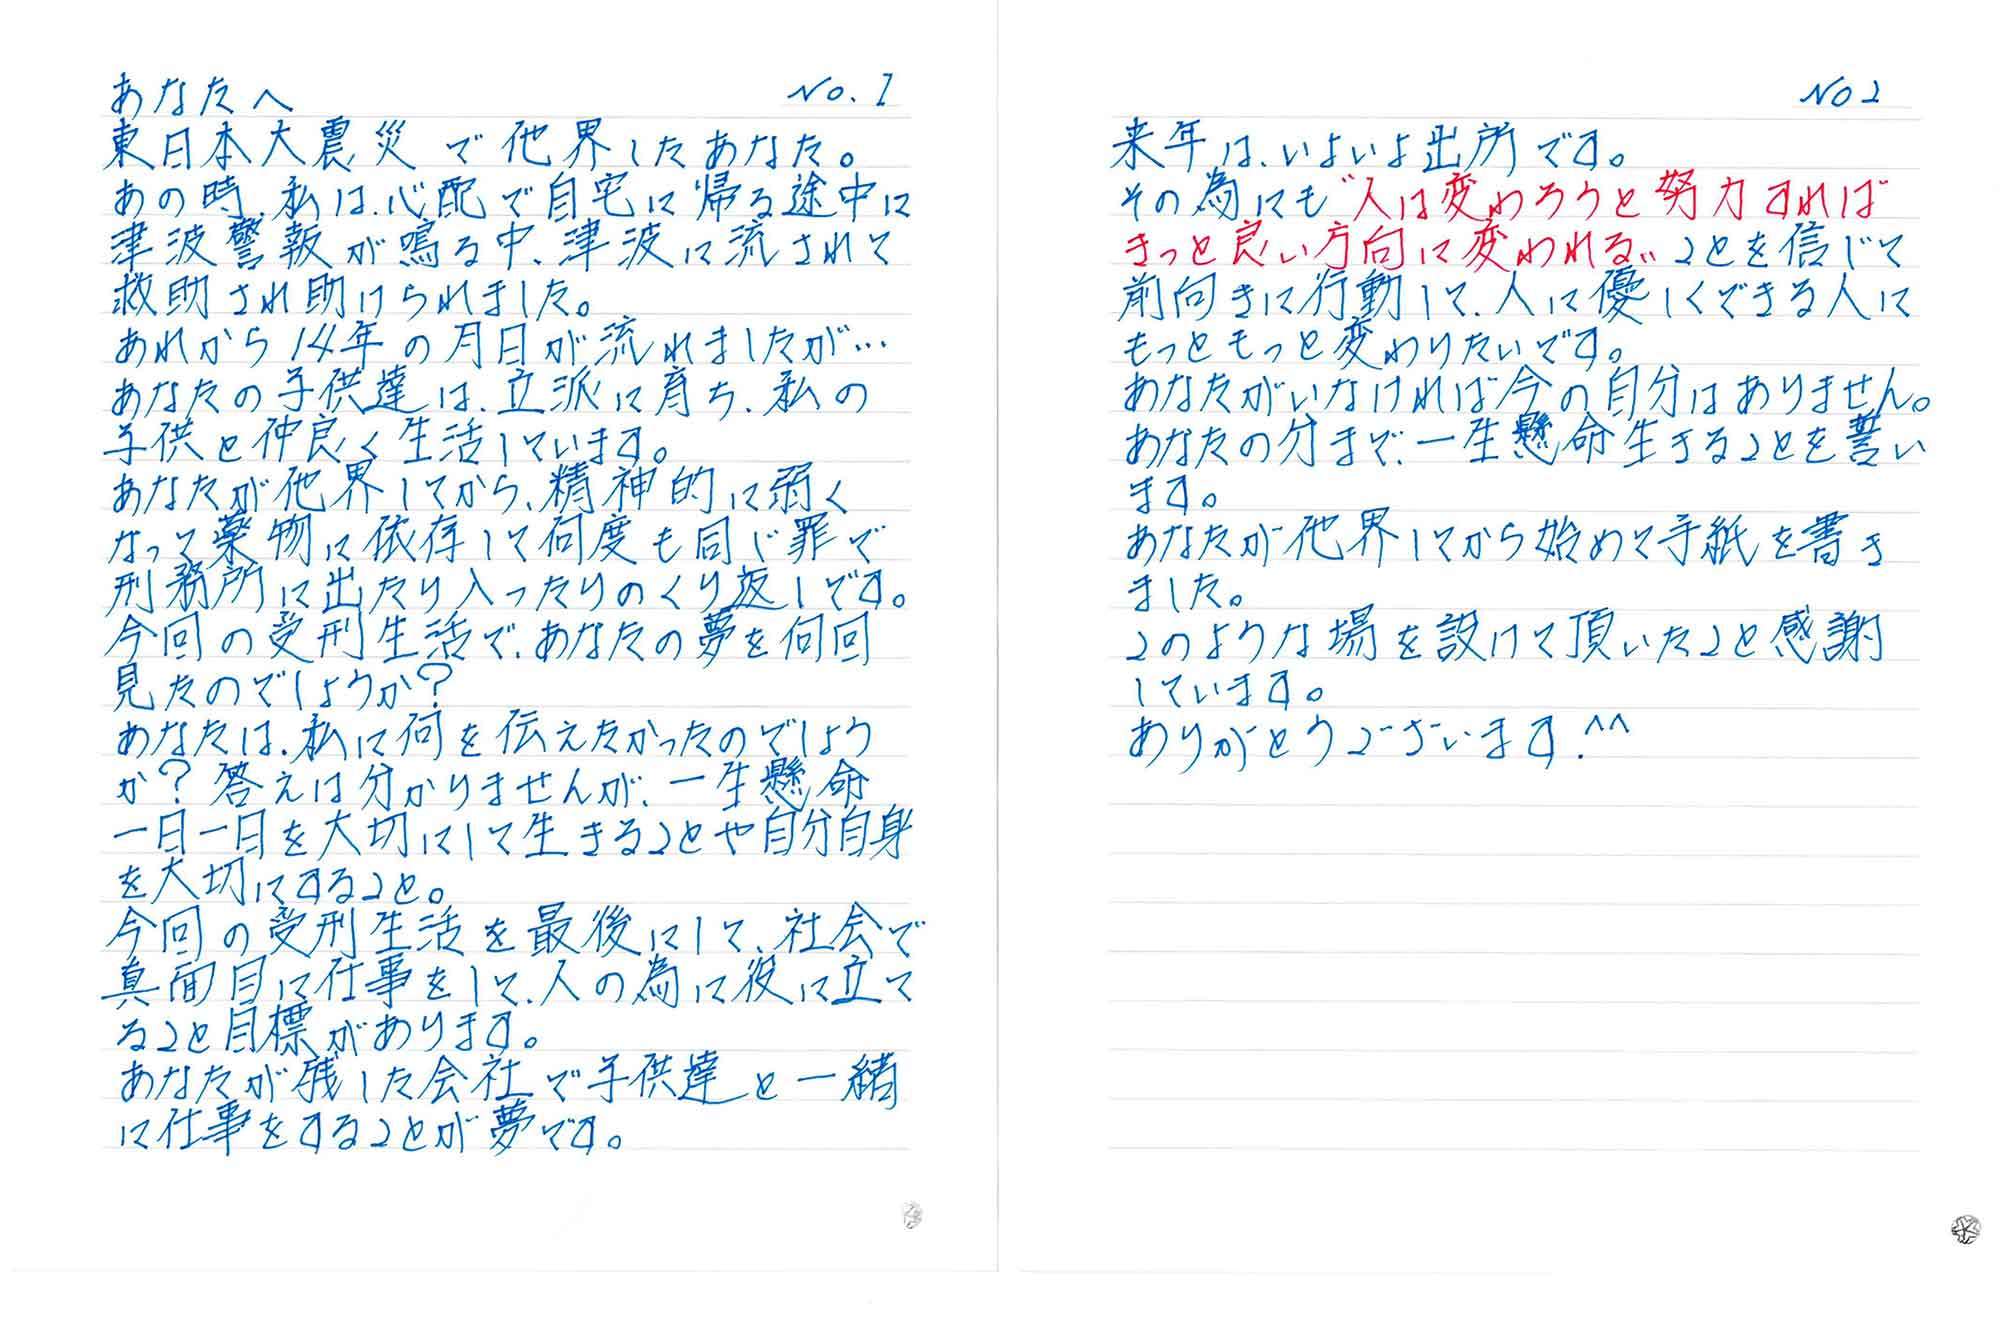 あなたへ No.1
東日本大震災で他界したあなた。
あの時、私は、心配で自宅に帰る途中に
津波警報が鳴る中、津波に流されて
救助され助けられました。
あれから14年の月日が流れましたが…
あなたの子供達は、立派に育ち、私の
子供と仲良く生活しています。
あなたが他界してから、精神的に弱く
なって薬物に依存して何度も同じ罪で
刑務所に出たり入ったりのくり返しです。
今回の受刑生活で、あなたの夢を何回
見たのでしょうか？
あなたは、私に何を伝えたかったのでしょう
か？答えは分かりませんが、一生懸命
一日一日を大切にして生きることや自分自身
を大切にすること。
今回の受刑生活を最後にして、社会で
真面目に仕事をして、人の為に役に立て
ること目標があります。
あなたが残した会社で子供達と一緒
に仕事をすることが夢です。
NO2
来年は、いよいよ出所です。
その為にも〝人は変わろうと努力すれば
きっと良い方向に変われる〟ことを信じて
前向きに行動して、人に優しくできる人に
もっともっと変わりたいです。
あなたがいなければ今の自分はありません。
あなたの分まで、一生懸命生きることを誓い
ます。
あなたが他界してから始めて手紙を書き
ました。
このような場を設けて頂いたこと感謝
しています。
ありがとうございます.^^